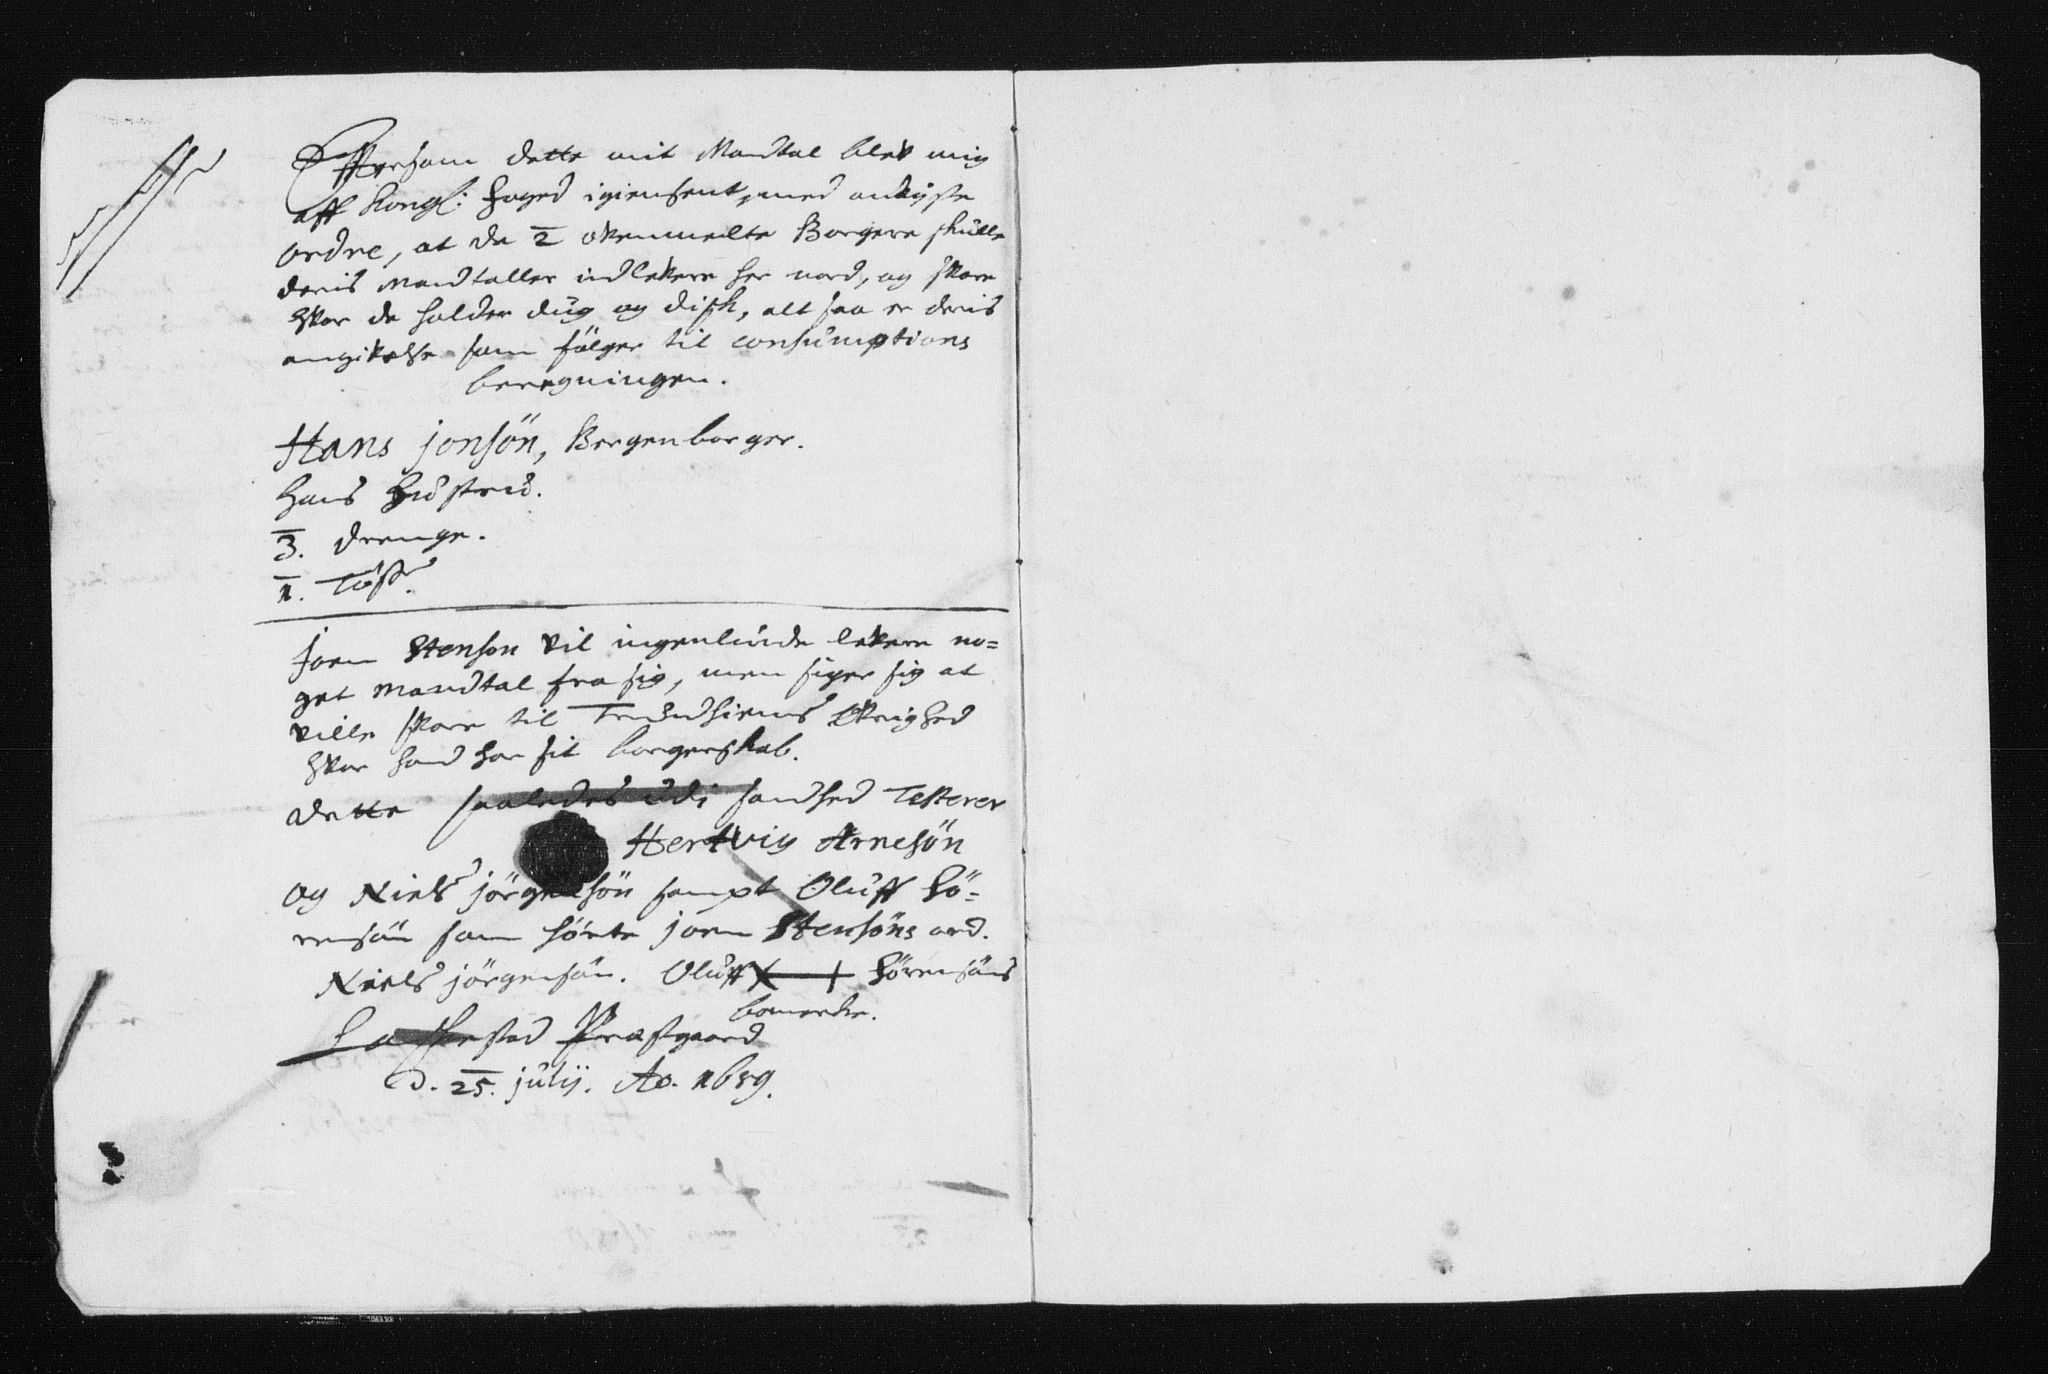 Efftersom dette mit Mandtal blev mig
aff Kongl: foged igiensent, med anviiste
ordre, at de 2 ovenmelte Borgere skulle
deris Mandtaller indlevere her nord, og svare
hvor de holder dug og disk, alt saa er deris
angivelse som fölger til Consumptions
beregningen.
Hans jonsön, Bergenborger.
hans hustrue.
3. drenge.
1. Tös.
joen Stenson vil ingenlunde levere no=
get Mandtal fra sig, men siger sig at
ville svare til Trundhiems Övrighed
hvor hand har sit borgerskab.
dette saaledes udi sandhed Testerer
Hertvig Arnesön
og Niels jörgensön sampt Oluff Sö=
rensön som hörte joen Stensöns ord.
Niels jörgensön. Oluff Sörensöns
bomerke.
Præstgaard
d. 25. julij. Ao.